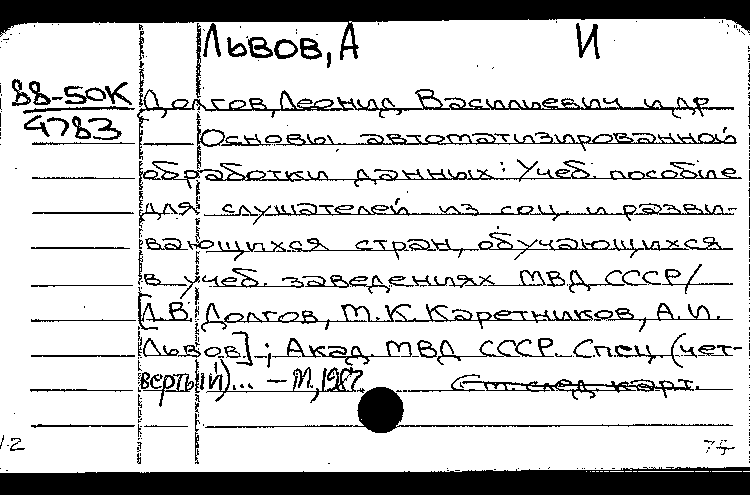 Львов, А И
88-50К
4783
Долгов, Леонид Васильевич и др
Основы автоматизированной
обработки данных: Учеб. пособие
для слушателей из соц. и разви-
вающихся стран, обучающихся
в учеб. заведениях МВД СССР/
[Л.В. Долгов, М.К. Каретников, А.И.
Львов]; Акад. МВД СССР. Спец. (чет-
вертый)... – М., 1987.
См. след. карт.